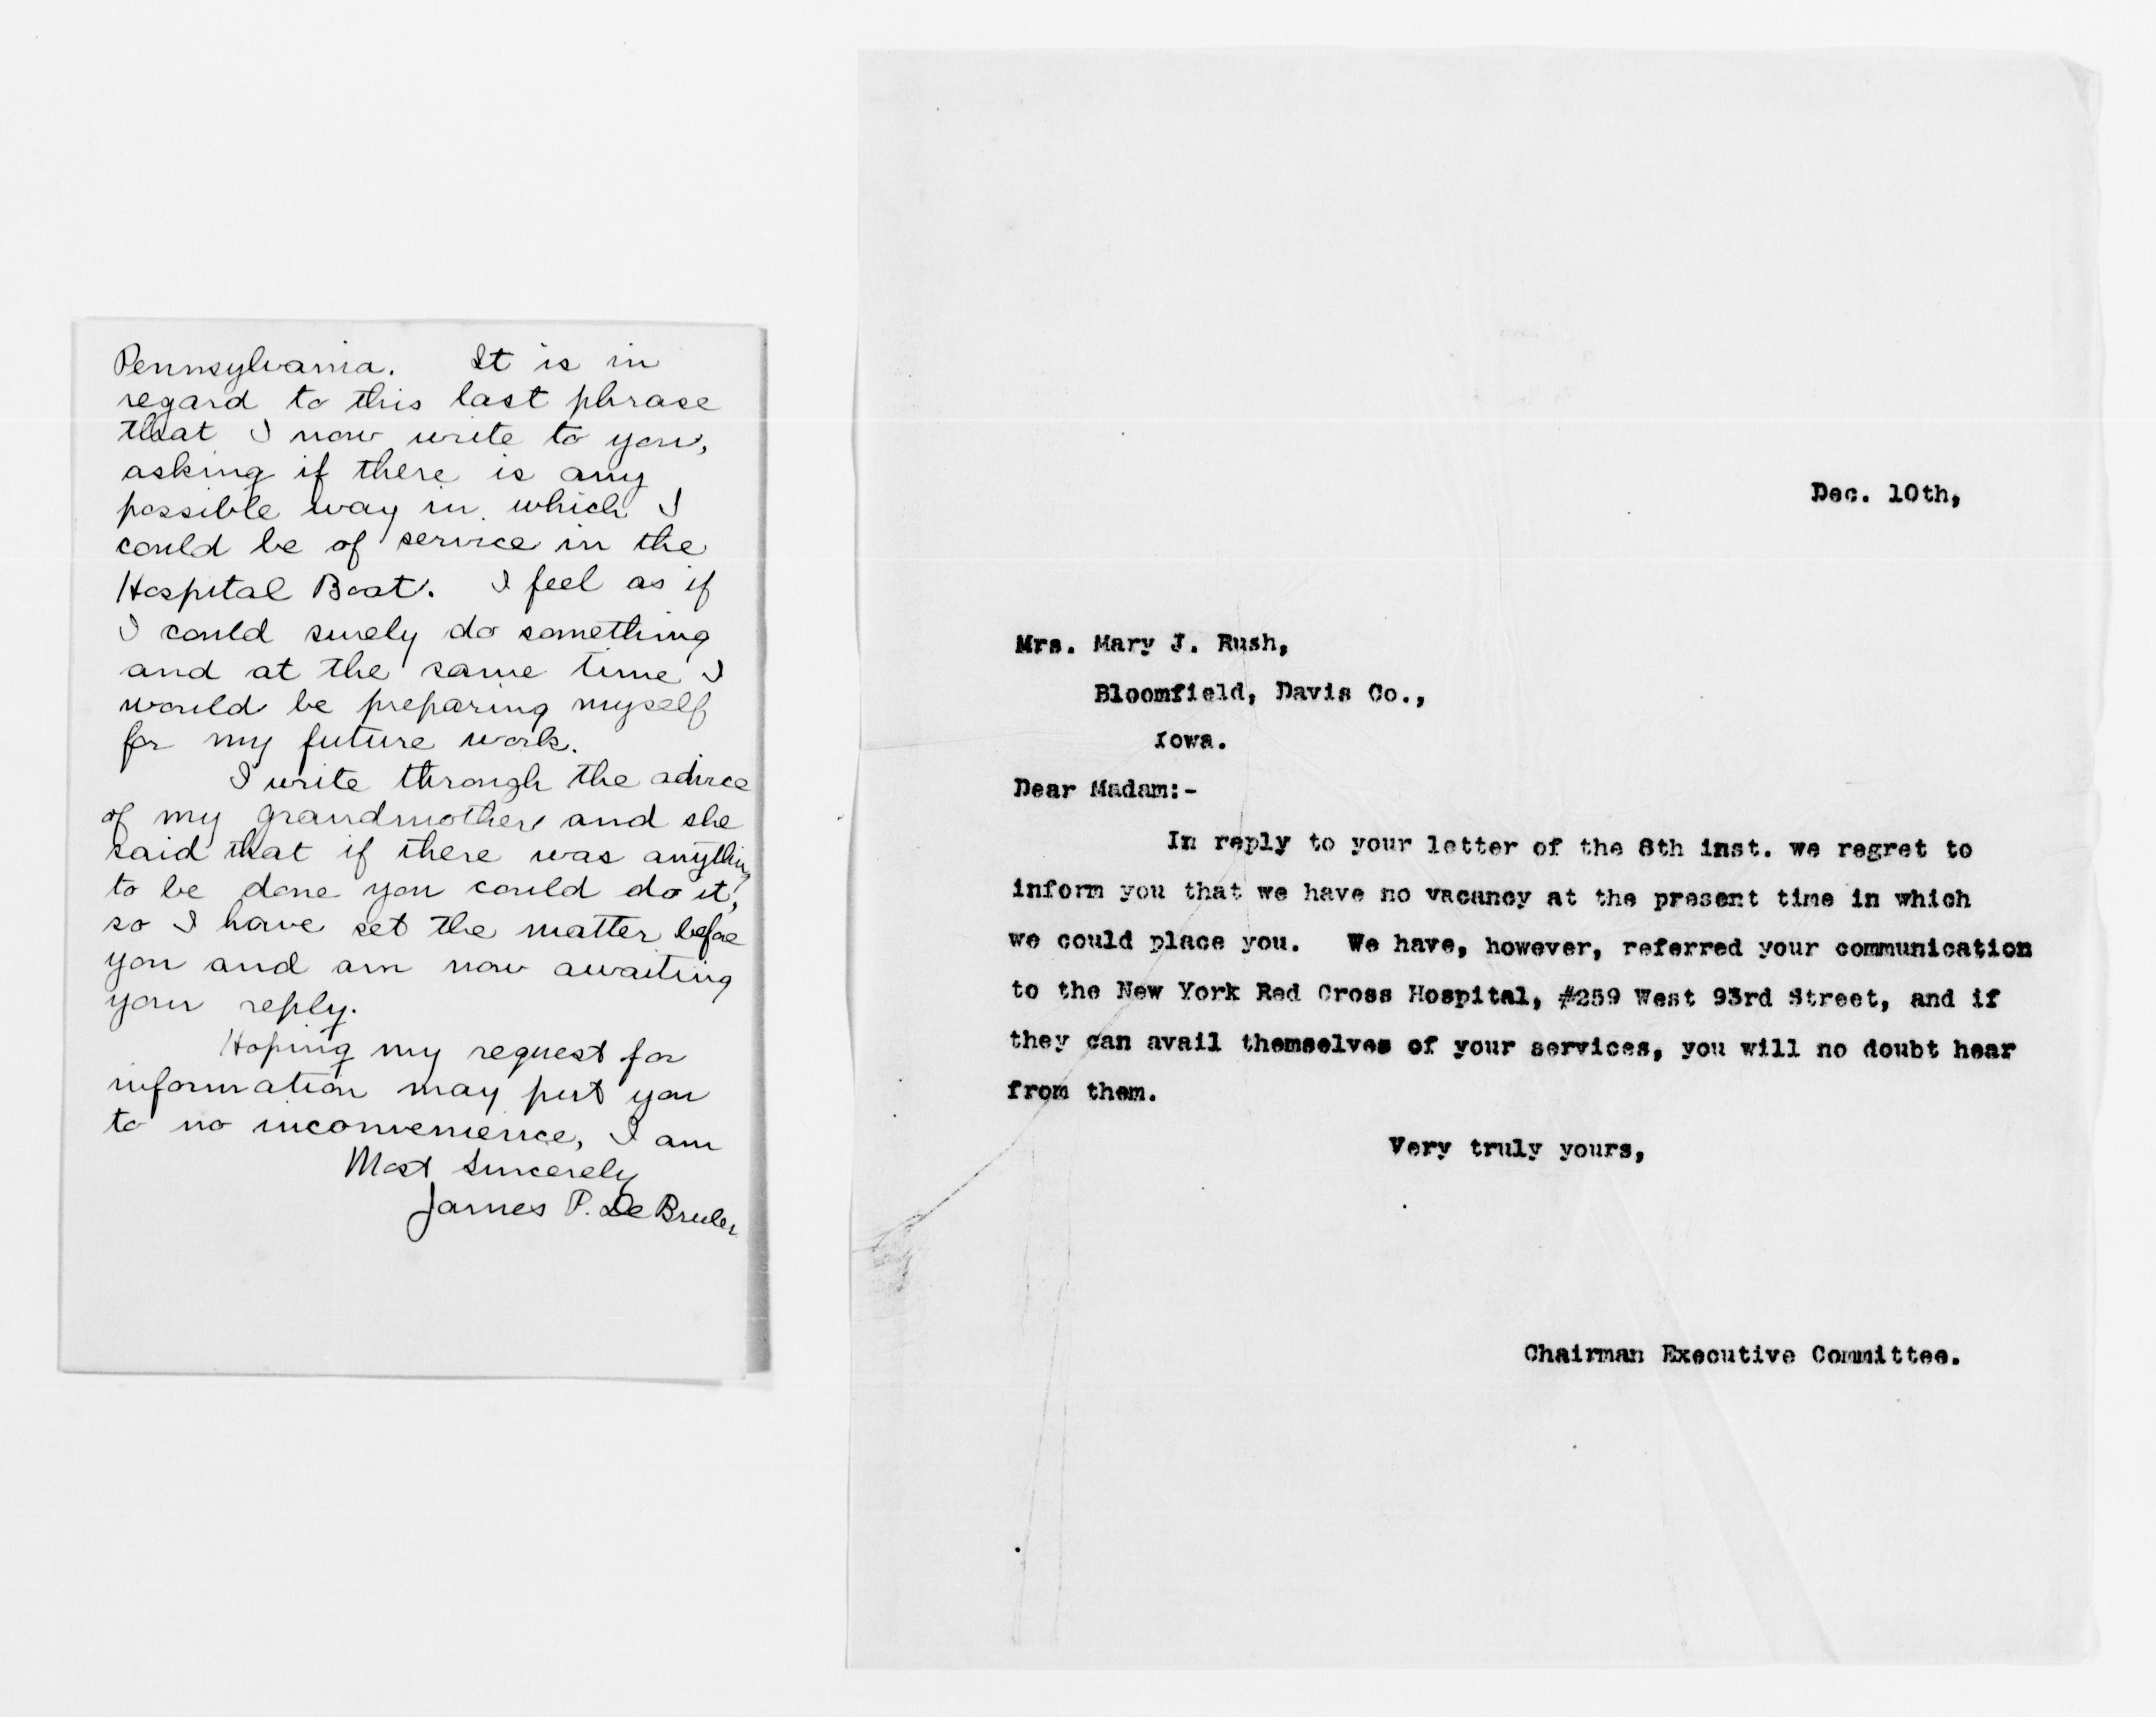 Pennsylvania. It is in
regard to this last phrase
that I now write to you,
asking if there is any
possible way in which I
could be of service in the
Hospital Boat. I feel as if
I could surely do something
and at the same time I
would be preparing myself
for my future work.
I write through the advice
of my grandmother and she
said that if there was anything
to be done you could do it,
so I have set the matter before
you and am now awaiting
your reply.
Hoping my request for
information may put you
to no inconvenience, I am
Most Sincerely
James P. De Bruler
Dec. 10th,
Mrs. Mary J. Rush,
Bloomfield, Davis Co.,
Iowa.
Dear Madam:-
In reply to your letter of the 8th inst. we regret to
inform you that we have no vacancy at the present time in which
we could place you. We have, however, referred your communication
to the New York Red Cross Hospital, #259 West 93rd Street, and if
they can avail themselves of your services, you will no doubt hear
from them.
Very truly yours,
Chairman Executive Committee.